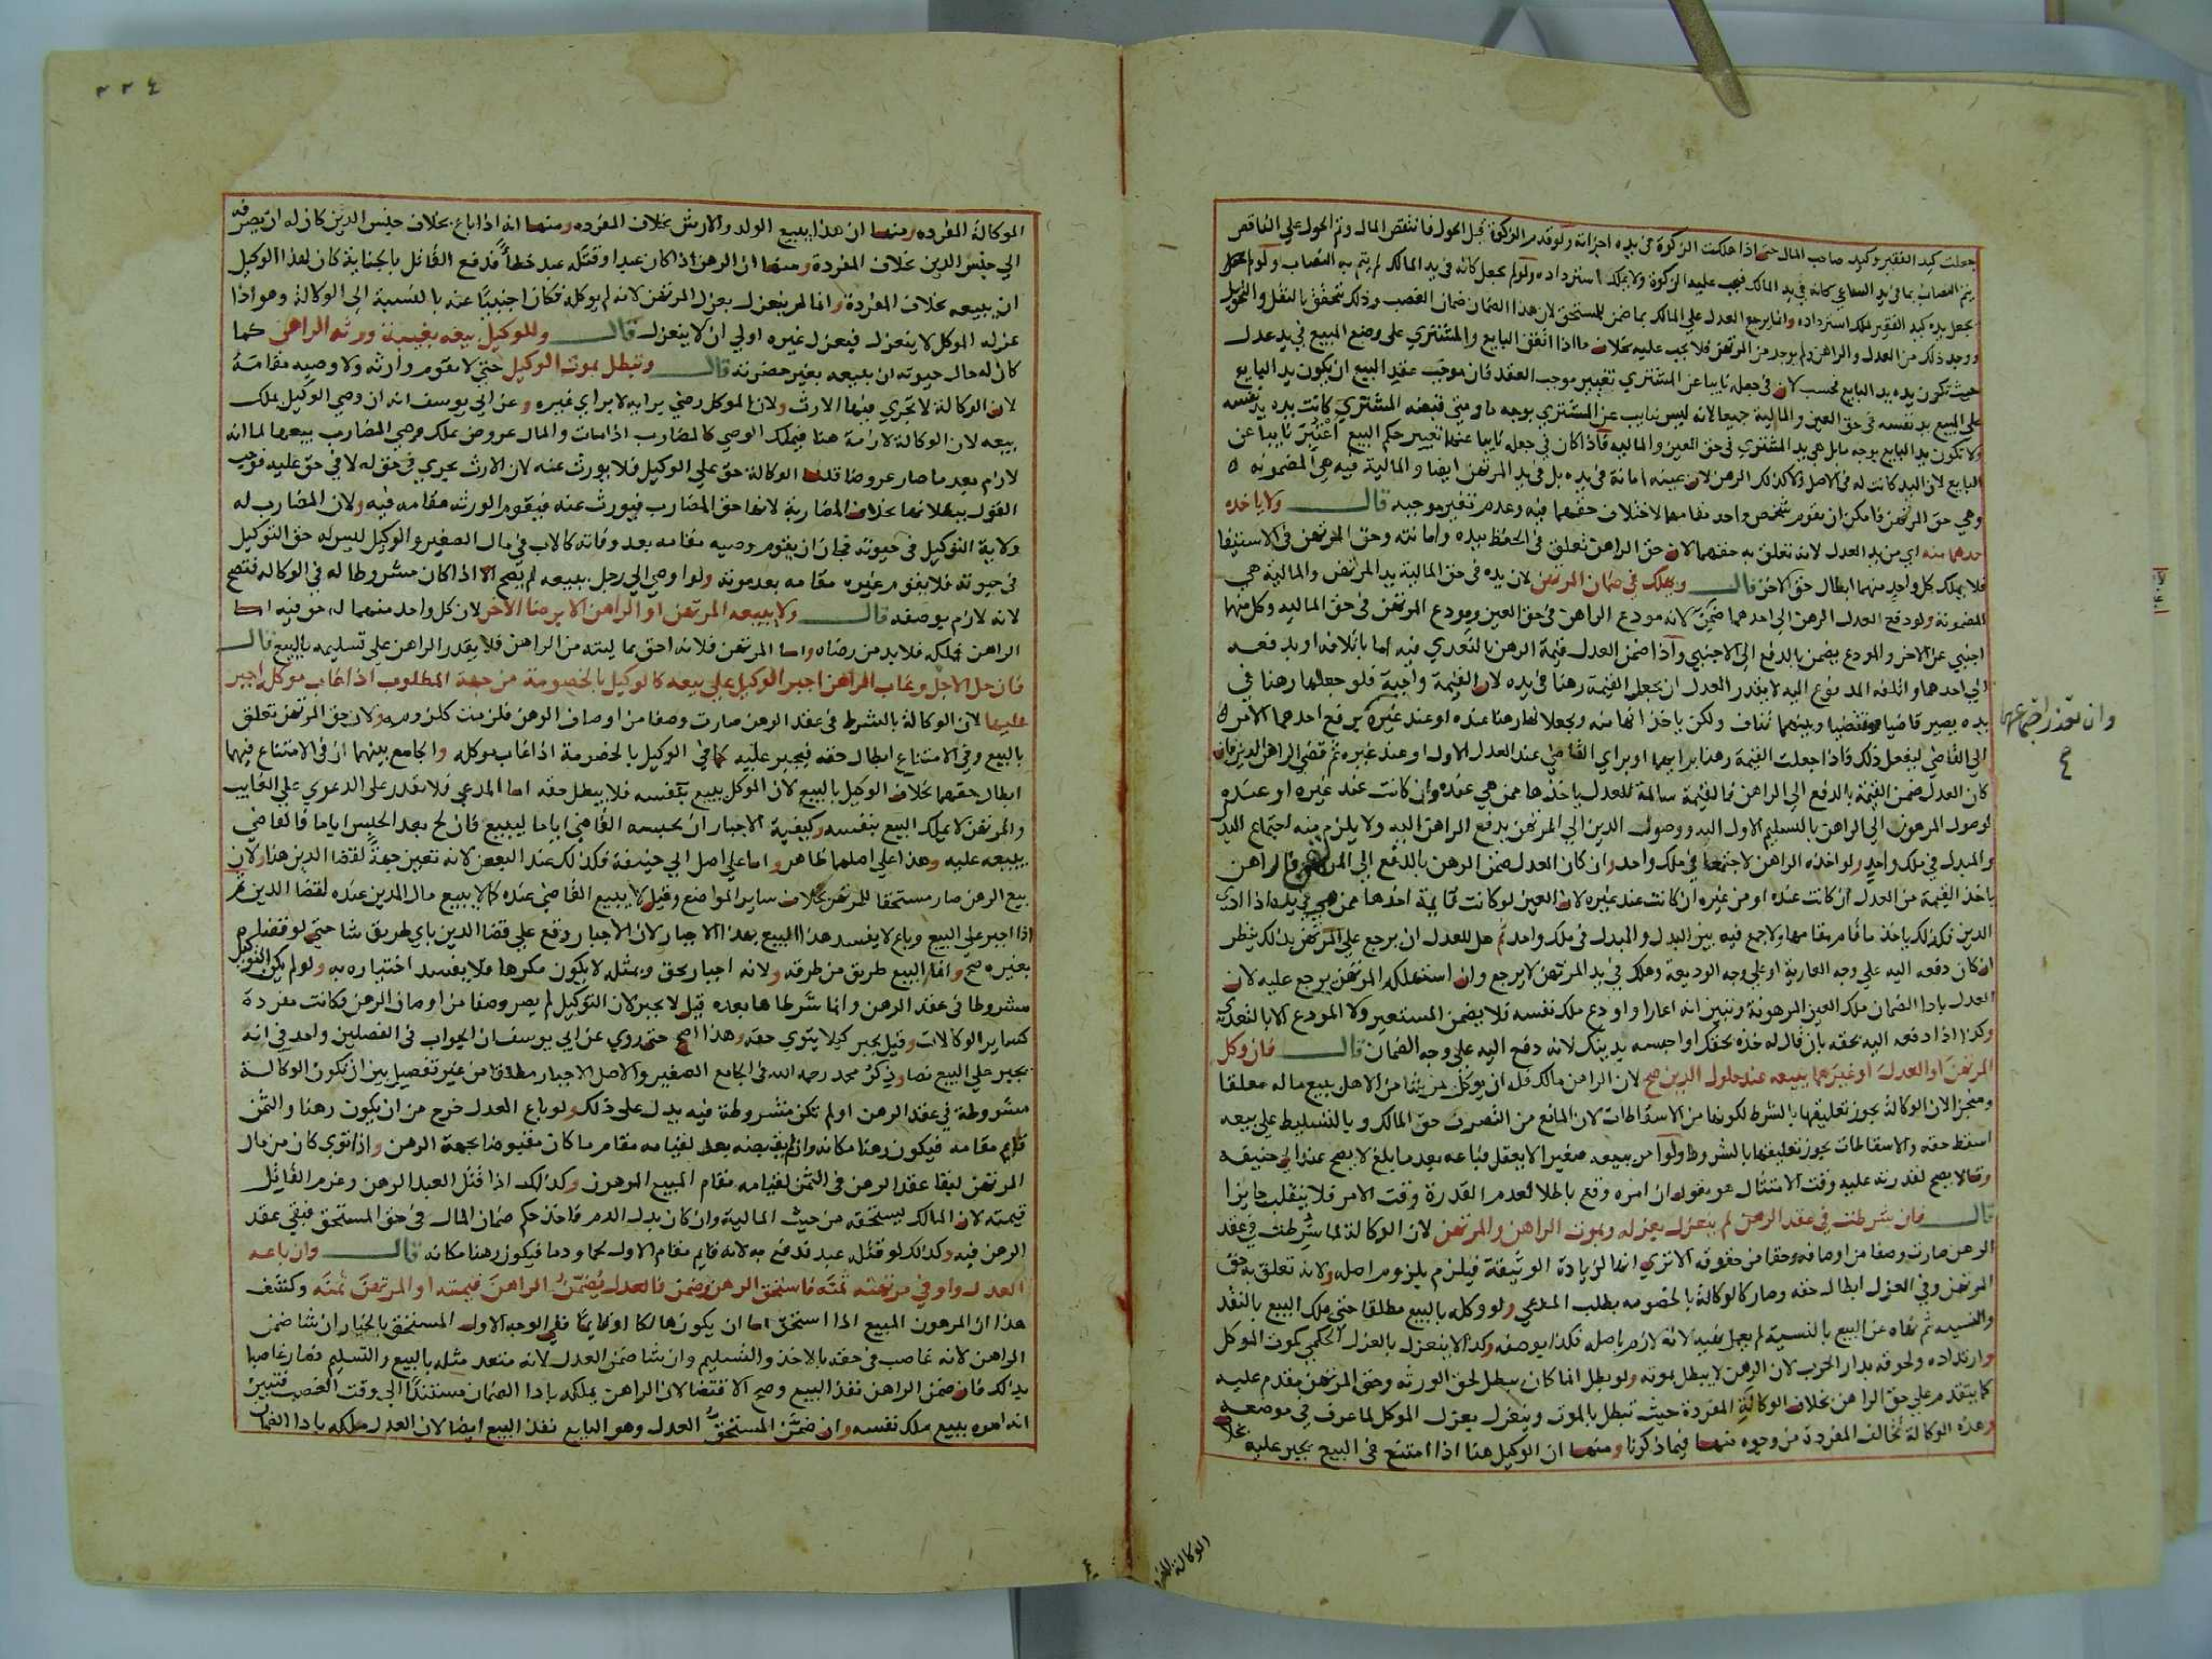 جعلت كيد الفقير وكيد صاحب المال حتى اذا هلكت الزكوة في يده اجزاته ولو قدم الزكوة قبل الحول فانتقص المال وتم الحول على الناقص
يتم النصاب بما في يد الساعي كانه في يد المالك فيجب عليه الزكوة ولا يملك استرداده ولو لم يجعل كانه في يد المالك لم يتم به النصاب ولو لم
يجعل يده كيد الفقير لملك استرداده وانما يرجع العدل على المالك بما ضمن للمستحق لان هذا الضمان ضمان الغصب وذلك يتحقق بالنقل والتحويل
ووجد ذلك من العدل والراهن ولم يوجد من المرتهن فلا يجب عليه بخلاف ما اذا اتفق البايع والمشتري على وضع المبيع في يد عدل
حيث تكون يده يد البايع فحسب لان في جعله نايبا عن المشتري تغيير موجب العقد فان موجب عقد البيع ان يكون يد البايع
على المبيع يد نفسه في حق العين والمالية جميعا لانه ليس بنايب عن المشتري بوجه ما ومتى قبضه المشتري كانت يده يد نفسه
ولا تكون يد البايع بوجه ما بل هي يد المشتري في حق العين والمالية فاذا كان في جعله نايبا عنهما تغيير حكم البيع اعتبر نايبا عن
البايع لان اليد كانت له في الاصل ولا كذلك الرهن لان عينه امانة في يده بل في يد المرتهن ايضا والمالية فيه هي المضمونة
وهي حق المرتهن فامكن ان يقوم شخص واحد مقامهما لاختلاف حقهما فيه وعدم تغير موجبه قال ولا ياخذه
احدهما منه اي من يد العدل لانه تعلق به حقهما لان حق الراهن تعلق في الحفظ بيده وامانته وحق المرتهن في الاستيفا
فلا يملك كل واحد منهما ابطال حق الاخر قال ويهلك في ضمان المرتهن لان يده في حق المالية يد المرتهن والمالية هي
المضمونة ولو دفع العدل الرهن الى احدهما ضمن لانه مودع الراهن في حق العين ومودع المرتهن في حق المالية وكل منهما
اجنبي عن الاخر والمودع يضمن بالدفع الى الاجنبي واذا ضمن العدل قيمة الرهن بالتعدي فيه اما باتلافه او بدفعه
الى احدهما واتلفه المدفوع اليه لا يقدر العدل ان يجعل القيمة رهنا في يده لان القيمة واجبة فلو جعلها رهنا في
يده يصير قاضيا ومقتضيا وبينهما تناف ولكن ياخذانها منه ويجعلانها رهنا عنده او عند غيره يرفع احدهما الامر
وان تعذر اجتماعهما
الى القاضي ليفعل ذلك فاذا جعلت القيمة رهنا برايهما او براي القاضي عند العدل الاول او عند غيره ثم قضى الراهن الدين فان
كان العدل ضمن القيمة بالدفع الى الراهن فالقيمة سالمة للعدل ياخذها ممن هي عنده وان كانت عند غيره او عنده
لوصول المرهون الى الراهن بالتسليم الاول اليه ووصول الدين الى المرتهن بدفع الراهن اليه ولا يلزم منه اجتماع البدل
والمبدل في ملك واحد ولو اخذه الراهن لاجتمعا في ملك واحد وان كان العدل ضمن الرهن بالدفع الى المرتهن فالراهن
ياخذ القيمة من العدل ان كانت عنده او من غيره ان كانت عند غيره لان العين لو كانت قايمة اخذها ممن هي في يده اذا ادى
الدين فكذلك ياخذ ما قام مقامها ولا جمع فيه بين البدل والمبدل في ملك واحد ثم هل للعدل ان يرجع على المرتهن بذلك ينظر
ان كان دفعه اليه على وجه العارية او على وجه الوديعة وهلك في يد المرتهن لا يرجع وان استهلكه المرتهن يرجع عليه لان
العدل بادا الضمان ملك العين المرهونة وتبين انه اعار او اودع ملك نفسه فلا يضمن المستعير ولا المودع الا بالتعدي
وكذا اذا دفعه اليه بحقه بان قال له خذه بحقك او احبسه بدينك لانه دفع اليه على وجه الضمان قال فان وكل
المرتهن او العدل او غيرهما ببيعه عند حلول الدين صح لان الراهن مالك فله ان يوكل من شا من الاهل ببيع ماله معلقا
ومنجزا لان الوكالة يجوز تعليقها بالشرط لكونها من الاسقاطات لان المانع من التصرف حق المالك وبالتسليط على بيعه
اسقط حقه والاسقاطات يجوز تعليقها بالشروط ولو امر ببيعه صغيرا لا يعقل فباعه بعد ما بلغ لا يصح عند ابي حنيفة
وقالا يصح لقدرته عليه وقت الامتثال هو يقول ان امره وقع باطلا لعدم القدرة وقت الامر فلا ينقلب جايزا
قال فان شرطت في عقد الرهن لم ينعزل بعزله وبموت الراهن والمرتهن لان الوكالة لما شرطت في عقد
الرهن صارت وصفا من اوصافه وحقا من حقوقه الا ترى انها لزيادة الوثيقة فيلزم بلزوم اصله ولانه تعلق به حق
المرتهن وفي العزل ابطال حقه وصار كالوكالة بالخصومه بطلب المدعي ولو وكله بالبيع مطلقا حتى ملك البيع بالنقد
والنسيه ثم نهاه عن البيع بالنسية لم يعمل نهيه لانه لازم باصله فكذا بوصفه وكذا لا ينعزل بالعزل الحكمي كموت الموكل
وارتداده ولحوقه بدار الحرب لان الرهن لا يبطل بموته ولو بطل انما كان يبطل لحق الورثه وحق المرتهن مقدم عليه
كما يتقدم على حق الراهن بخلاف الوكالة المفردة حيث تبطل بالموت وينعزل بعزل الموكل لما عرف في موضعه
وهذه الوكالة تخالف المفردة من وجوه منها فيما ذكرنا ومنها ان الوكيل هنا اذا امتنع عن البيع يجبر عليه بخلاف
الوكالة المفردة
٢٢٤
الوكالة المفرده ومنها ان هذا يبيع الولد والارش بخلاف المفرده ومنها انه اذا باع بخلاف جنس الدين كان له ان يصرفه
الى جنس الدين بخلاف المفردة ومنها ان الرهن اذا كان عبدا وقتله عبد خطأ فدفع القاتل بالجناية كان لهذا الوكيل
ان يبيعه بخلاف المفردة وانما لم ينعزل بعزل المرتهن لانه لم يوكله فكان اجنبيا عنه بالنسبة الى الوكالة وهو اذا
عزله الموكل لا ينعزل فبعزل غيره اولى ان لا ينعزل قال وللوكيل بيعه بغيبة ورثه الراهن كما
كان له حال حيوته ان يبيعه بغير حضرته قال وتبطل بموت الوكيل حتى لا يقوم وارثه ولا وصيه مقامه
لان الوكالة لا تجري فيها الارث ولان الموكل رضي برايه لا براي غيره وعن ابي يوسف انه ان وصي الوكيل يملك
بيعه لان الوكالة لازمة هنا فيملك الوصي كالمضارب اذا مات والمال عروض يملك وصي المضارب بيعها لما انه
لازم بعد ما صار عروضا قلنا الوكالة حق على الوكيل فلا يورث عنه لان الارث يجري في حق له لا في حق عليه فوجب
القول ببطلانها بخلاف المضاربة لانها حق المضارب فيورث عنه فيقوم الورثه مقامه فيه ولان المضارب له
ولاية التوكيل في حيوته فجاز ان يقوم وصيه مقامه بعد وفاته كالاب في مال الصغير والوكيل ليس له حق التوكيل
في حيوته فلا يقوم غيره مقامه بعد موته ولو اوصى الى رجل ببيعه لم يصح الا اذا كان مشروطا له في الوكالة فتصح
لانه لازم بوصفه قال ولا يبيعه المرتهن او الراهن الا برضا الاخر لان كل واحد منهما له حق فيه اما
الراهن فملكه فلا بد من رضاه واما المرتهن فلانه احق بماليته من الراهن فلا يقدر الراهن على تسليمه بالبيع قال
فان حل الاجل وغاب الراهن اجبر الوكيل على بيعه كالوكيل بالخصومة من جهة المطلوب اذا غاب موكله اجبر
عليها لان الوكالة بالشرط في عقد الرهن صارت وصفا من اوصاف الرهن فلزمت كلزومه ولان حق المرتهن تعلق
بالبيع وفي الامتناع ابطال حقه فيجبر عليه كما في الوكيل بالخصومة اذا غاب موكله والجامع بينهما ان في الامتناع فيهما
ابطال حقهما بخلاف الوكيل بالبيع لان الموكل يبيع بنفسه فلا يبطل حقه اما المدعي فلا يقدر على الدعوى على الغايب
والمرتهن لا يملك البيع بنفسه وكيفية الاجبار ان يحبسه القاضي اياما ليبيع فان لج بعد الحبس اياما فالقاضي
يبيعه عليه وهذا على اصلهما ظاهر واما على اصل ابي حنيفة فكذلك عند البعض لانه تعين جهة لقضا الدين هنا ولان
بيع الرهن صار مستحقا للمرتهن بخلاف ساير المواضع وقيل لا يبيع القاضي عنده كما لا يبيع مال المدين عنده لقضا الدين ثم
اذا اجبر على البيع وباع لا يفسد هذا البيع بهذا الاجبار لان الاجبار وقع على قضا الدين باي طريق شا حتى لو قضاه
بغيره صح وانما البيع طريق من طرقه ولانه اجبار بحق وبمثله لا يكون مكرها فلا يفسد اختياره به ولو لم يكن التوكيل
مشروطا في عقد الرهن وانما شرطاها بعده قيل لا يجبر لان التوكيل لم يصر وصفا من اوصاف الرهن فكانت مفردة
كساير الوكالات وقيل يجبر كيلا يتوي حقه وهذا اصح حتى روي عن ابي يوسف ان الجواب في الفصلين واحد في انه
يجبر على البيع نصا وذكر محمد رحمه الله في الجامع الصغير والاصل الاجبار مطلقا من غير تفصيل بين ان تكون الوكالة
مشروطة في عقد الرهن او لم تكن مشروطة فيه يدل على ذلك ولو باع العدل خرج من ان يكون رهنا والثمن
قايم مقامه فيكون رهنا مكانه وان لم يقبضه بعد لقيامه مقام ما كان مقبوضا بجهة الرهن واذا توى كان من مال
المرتهن لبقا عقد الرهن في الثمن لقيامه مقام المبيع المرهون وكذلك اذا قتل العبد الرهن وغرم القاتل
قيمته لان المالك يستحقه من حيث المالية وان كان بدل الدم فاخذ حكم ضمان المال في حق المستحق فبقي عقد
الرهن فيه وكذلك لو قتله عبد فدفع به لانه قايم مقام الاول لحما ودما فيكون رهنا مكانه قال وان باعه
العدل واوفى مرتهنه ثمنه فاستحق الرهن وضمن فالعدل يضمن الراهن قيمته او المرتهن ثمنه وكشف
هذا ان المرهون المبيع اذا استحق اما ان يكون هالكا او قايما ففي الوجه الاول المستحق بالخيار ان شا ضمن
الراهن لانه غاصب في حقه بالاخذ والتسليم وان شا ضمن العدل لانه متعد مثله بالبيع والتسليم فصار غاصبا
بذلك فان ضمن الراهن نفذ البيع وصح الاقتضا لان الراهن يملكه بادا الضمان مستندا الى وقت الغصب فتبين
انه امره ببيع ملك نفسه وان ضمن المستحق العدل وهو البايع نفذ البيع ايضا لان العدل ملكه بادا الضمان